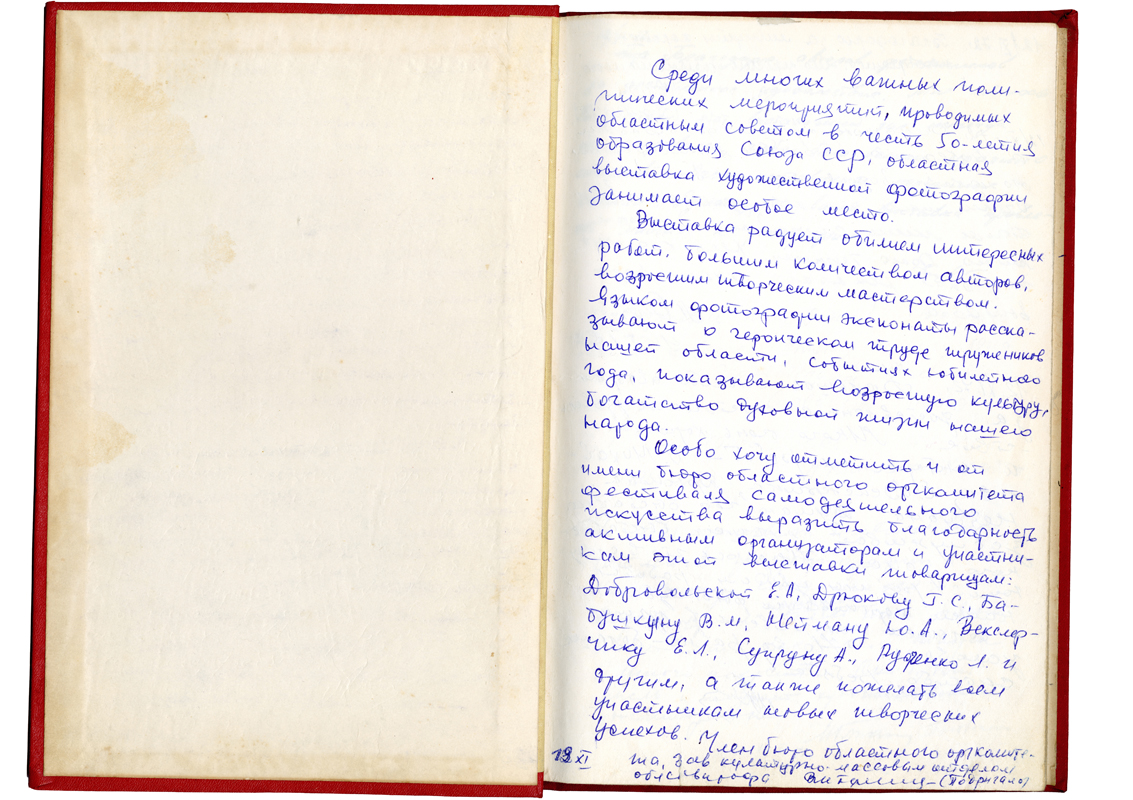 Среди многих важных поли-
тических мероприятий, проводимых
областным советом в честь 50-летия
образования Союза ССР, областная
выставка художественной фотографии
занимает особое место.
Выставка радует обилием интересных
работ, большим количеством авторов,
возросшим творческим мастерством.
Языком фотографии экспонаты расска-
зывают о героическом труде тружеников
нашей области, событиях юбилейного
года, показывают возросшую культуру,
богатство духовной жизни нашего
народа.
Особо хочу отметить и от
имени бюро областного оргкомитета
фестиваля самодеятельного
искусства выразить благодарность
активным организаторам и участни-
кам этой выставки товарищам:
Добровольской Е.А, Дрюкову Г.С., Ба-
бушкину В.М, Шейману Ю.А., Векслер-
чику Е.Л., Супруну А., Руденко Л. и
другим, а также пожелать всем
участникам новых творческих
успехов. Член бюро областного оргкомите-
та, зав культурно-массовым отделом
13 XI